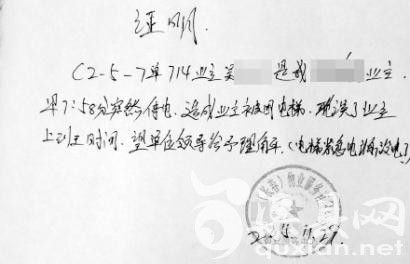 证明.
C2-5-7单714业主吴 是我 业主
早7:58分突然停电.造成业主被困电梯.耽误了业主
上班时间.望单位领导给予理解.(电梯紧急电话没电了)
物业服务
2014.11.27.
quxian.net